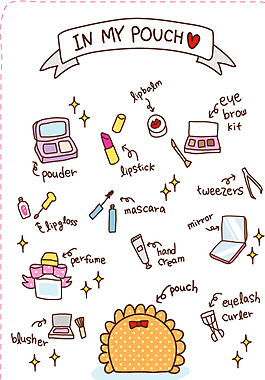 IN MY POUCH
lipbalm
eye
brow
kit
pouder
lipstick
tweezers
lipgloss
mascara
mirror
hand
cream
perfume
pouch
eyelash
curler
blusher